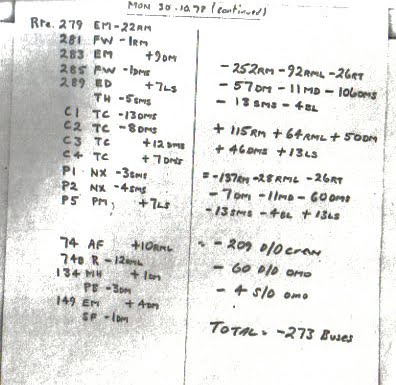 MON 30.10.78 (continued)
Rte. 279 EM -22RM
281 FW -1RM
283 EM +9DM
285 FW -1DMS
289 ED +7LS
TH -5SMS
C1 TC -13DMS
C2 TC -8DMS
C3 TC +12DMS
C4 TC +7DMS
P1 NX -3SMS
P2 NX -4SMS
P5 PM +7LS
74 AF +10RML
74B R -12RML
134 MH +1DM
PB -3DM
149 EM +4DM
SF -1DM
-252RM -92RML -26RT
-57DM -11MD -106DMS
-13SMS -4BL
+115RM +64RML +50DM
+46DMS +13LS
=-137RM -28RML -26RT
-7DM -11MD -60DMS
-13SMS -4BL +13LS
= -209 D/D CREW
-60 D/D OMO
-4 S/D OMO
TOTAL = -273 Buses